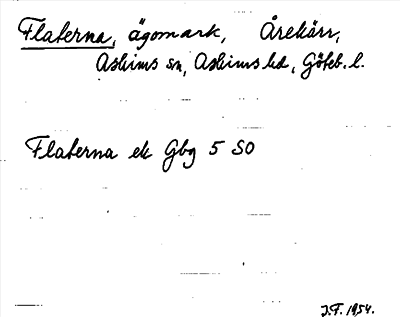 Flaterna, ägomark, Årekärr,
Askims sn, Askims hd, Göteb. l.
Flaterna ek Gbg 5 SO
J.F. 1954.